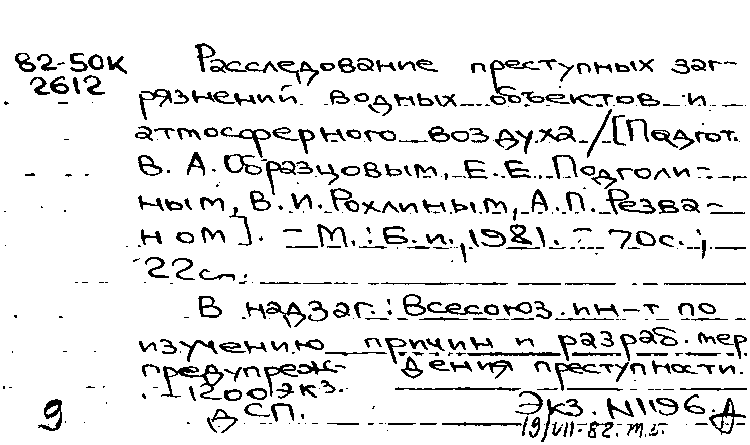 82-50К
2612
Расследование преступных заг-
рязнений водных объектов и
атмосферного воздуха/[Подгот.
В. А. Образцовым, Е. Е. Подголи-
ным, В. И. Рохлиным, А. П. Резва-
ном]. - М.: Б. и., 1981. - 70с.;
22см.
В надзаг.: Всесоюз. ин-т по
изучению причин и разраб. мер
предупреждения преступности.
- 1200экз.
ДСП.
Экз. N1196. Д
9
19/VII-82.